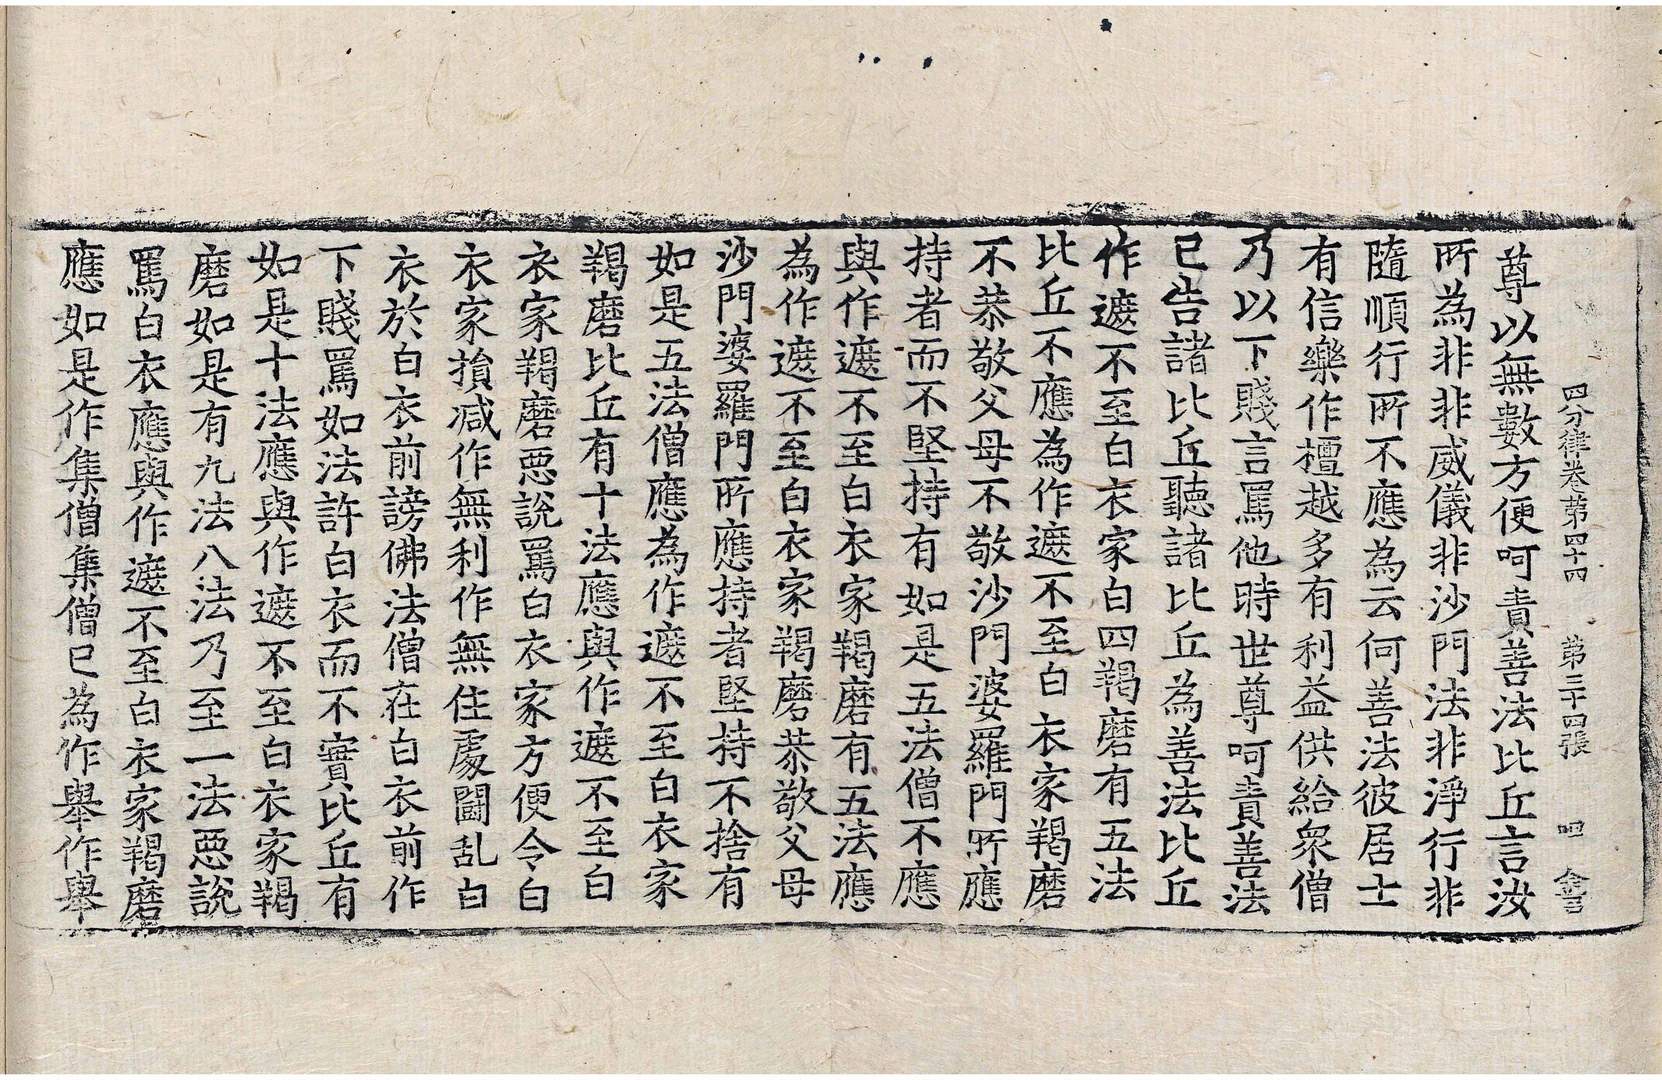 四分律卷第四十四 第三十四張
尊以無數方便呵責善法比丘言汝
所為非非威儀非沙門法非淨行非
隨順行所不應為云何善法彼居士
有信樂作檀越多有利益供給衆僧
乃以下賤言罵他時世尊呵責善法
已告諸比丘聽諸比丘為善法比丘
作遮不至白衣家白四羯磨有五法
比丘不應為作遮不至白衣家羯磨
不恭敬父母不敬沙門婆羅門所應
持者而不堅持有如是五法僧不應
與作遮不至白衣家羯磨有五法應
為作遮不至白衣家羯磨恭敬父母
沙門婆羅門所應持者堅持不捨有
如是五法僧應為作遮不至白衣家
羯磨比丘有十法應與作遮不至白
衣家羯磨惡說罵白衣家方便令白
衣家損減作無利作無住處鬪亂白
衣於白衣前謗佛法僧在白衣前作
下賤罵如法許白衣而不實比丘有
如是十法應與作遮不至白衣家羯
磨如是有九法八法乃至一法惡說
罵白衣應與作遮不至白衣家羯磨
應如是作集僧集僧已為作舉作舉